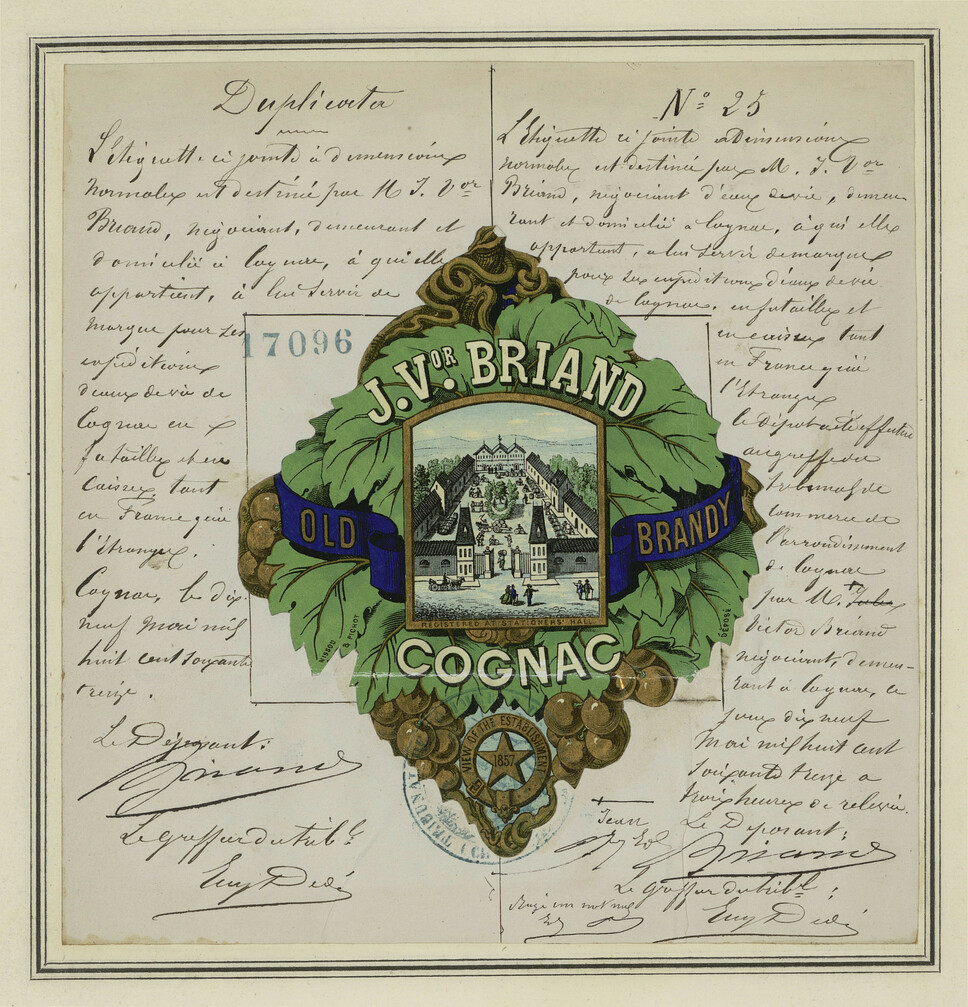 Duplicata
L'Etiquette ci jointe à dimensions
normales est destiné par M J. Vor
Briand, négociant, demeurant et
domicilié à Cognac, à qui elle
appartient, à lui servir de
marque pour ses
expéditions
d'eaux de vie de
Cognac en
futailles et en
Caisses, tant
en France qu'à
l'étranger.
Cognac, le dix
neuf Mai mil
huit cent soixante
treize.
Le Déposant:
Briand
Le greffier du tribal
Eug Dedé
No 25
L'Etiquette ci jointe a Dimensions
normales est destiné par M. J. Vor
Briand, négociant d'eaux de vie, demeu-
rant et domicilié a Cognac, à qui elle
appartient, a lui servir de marque
pour ses expéditions d'eaux de vie
de Cognac, en futailles et
en caisses tant
en France qu'à
l'Etranger
le dépot a été effectué
au greffe du
tribunal de
commerce de
l'arrondissement
de Cognac
par M. Jules
Victor Briand
négociant, demeu-
rant à Cognac, le
jour dix neuf
Mai mil huit cent
soixante treize a
trois heures de relevée.
Le Déposant:
Briand
Jean
Le greffier du tribal:
Eug Dedé
Rayé un mot nul
17096
J. VOR. BRIAND
OLD BRANDY
REGISTERED AT STATIONERS' HALL
COGNAC
NISSOU & PICHOT
DÉPOSÉ
VIEW OF THE ESTABLISHMENT
1857
TRIBUNAL